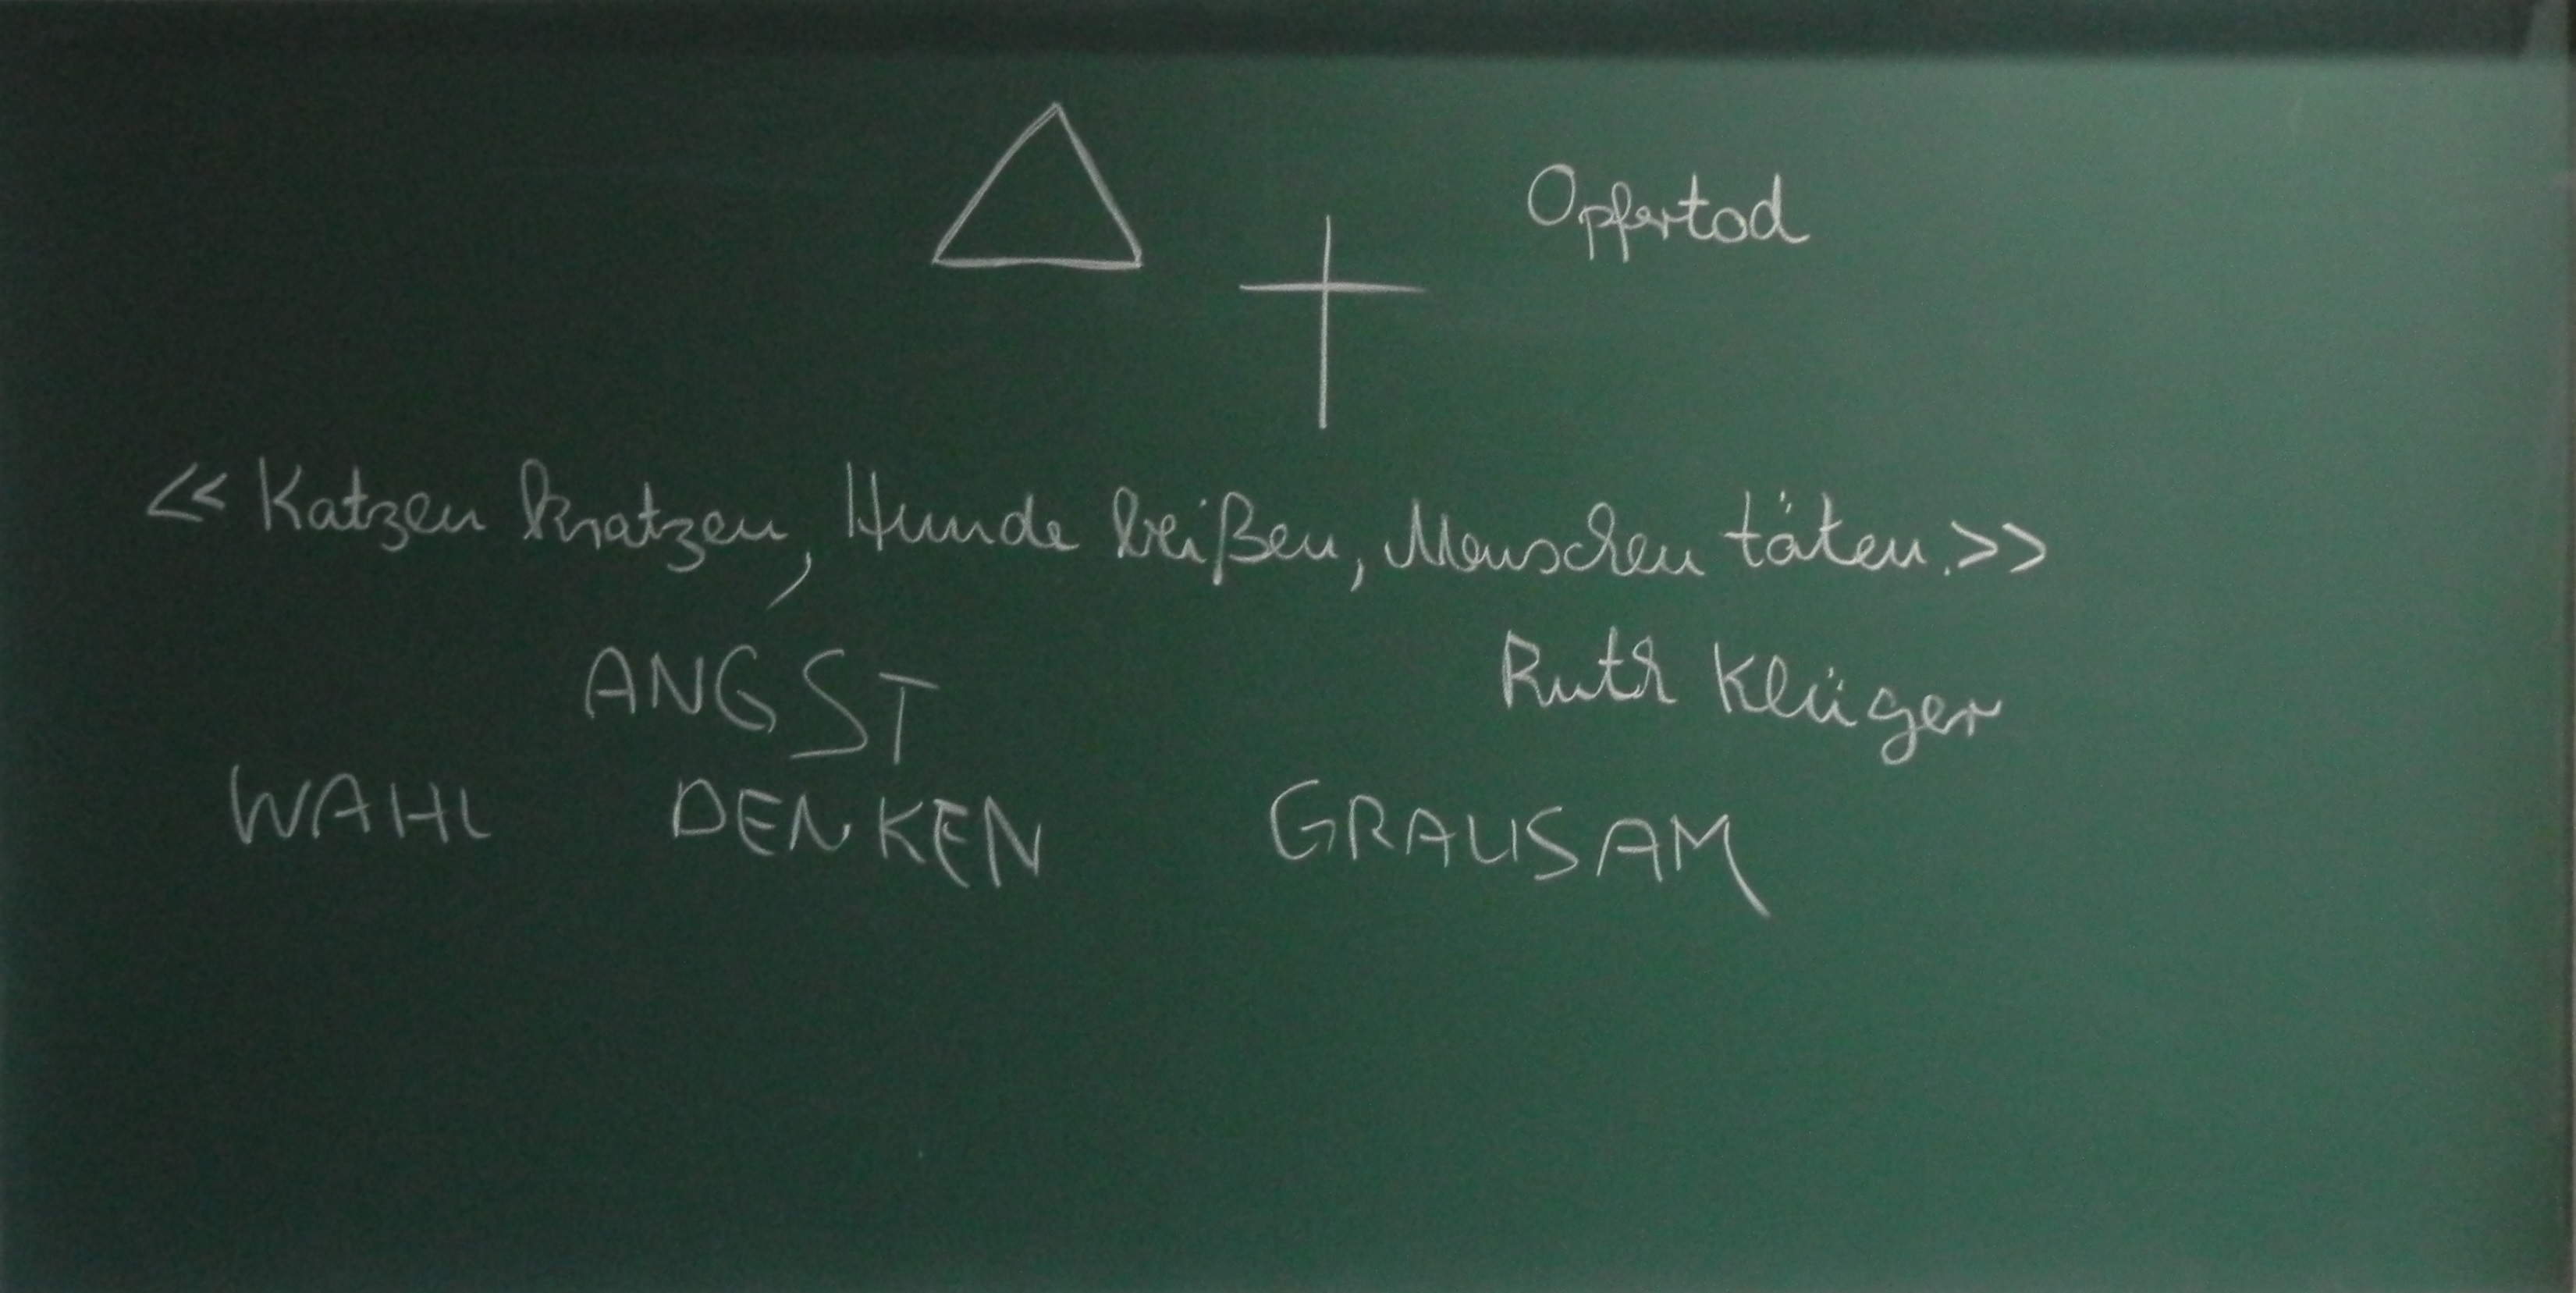 Opfertod
<< Katzen kratzen, Hunde beißen, Menschen täten.>>
ANGST
Ruth Klüger
WAHL DENKEN GRAUSAM